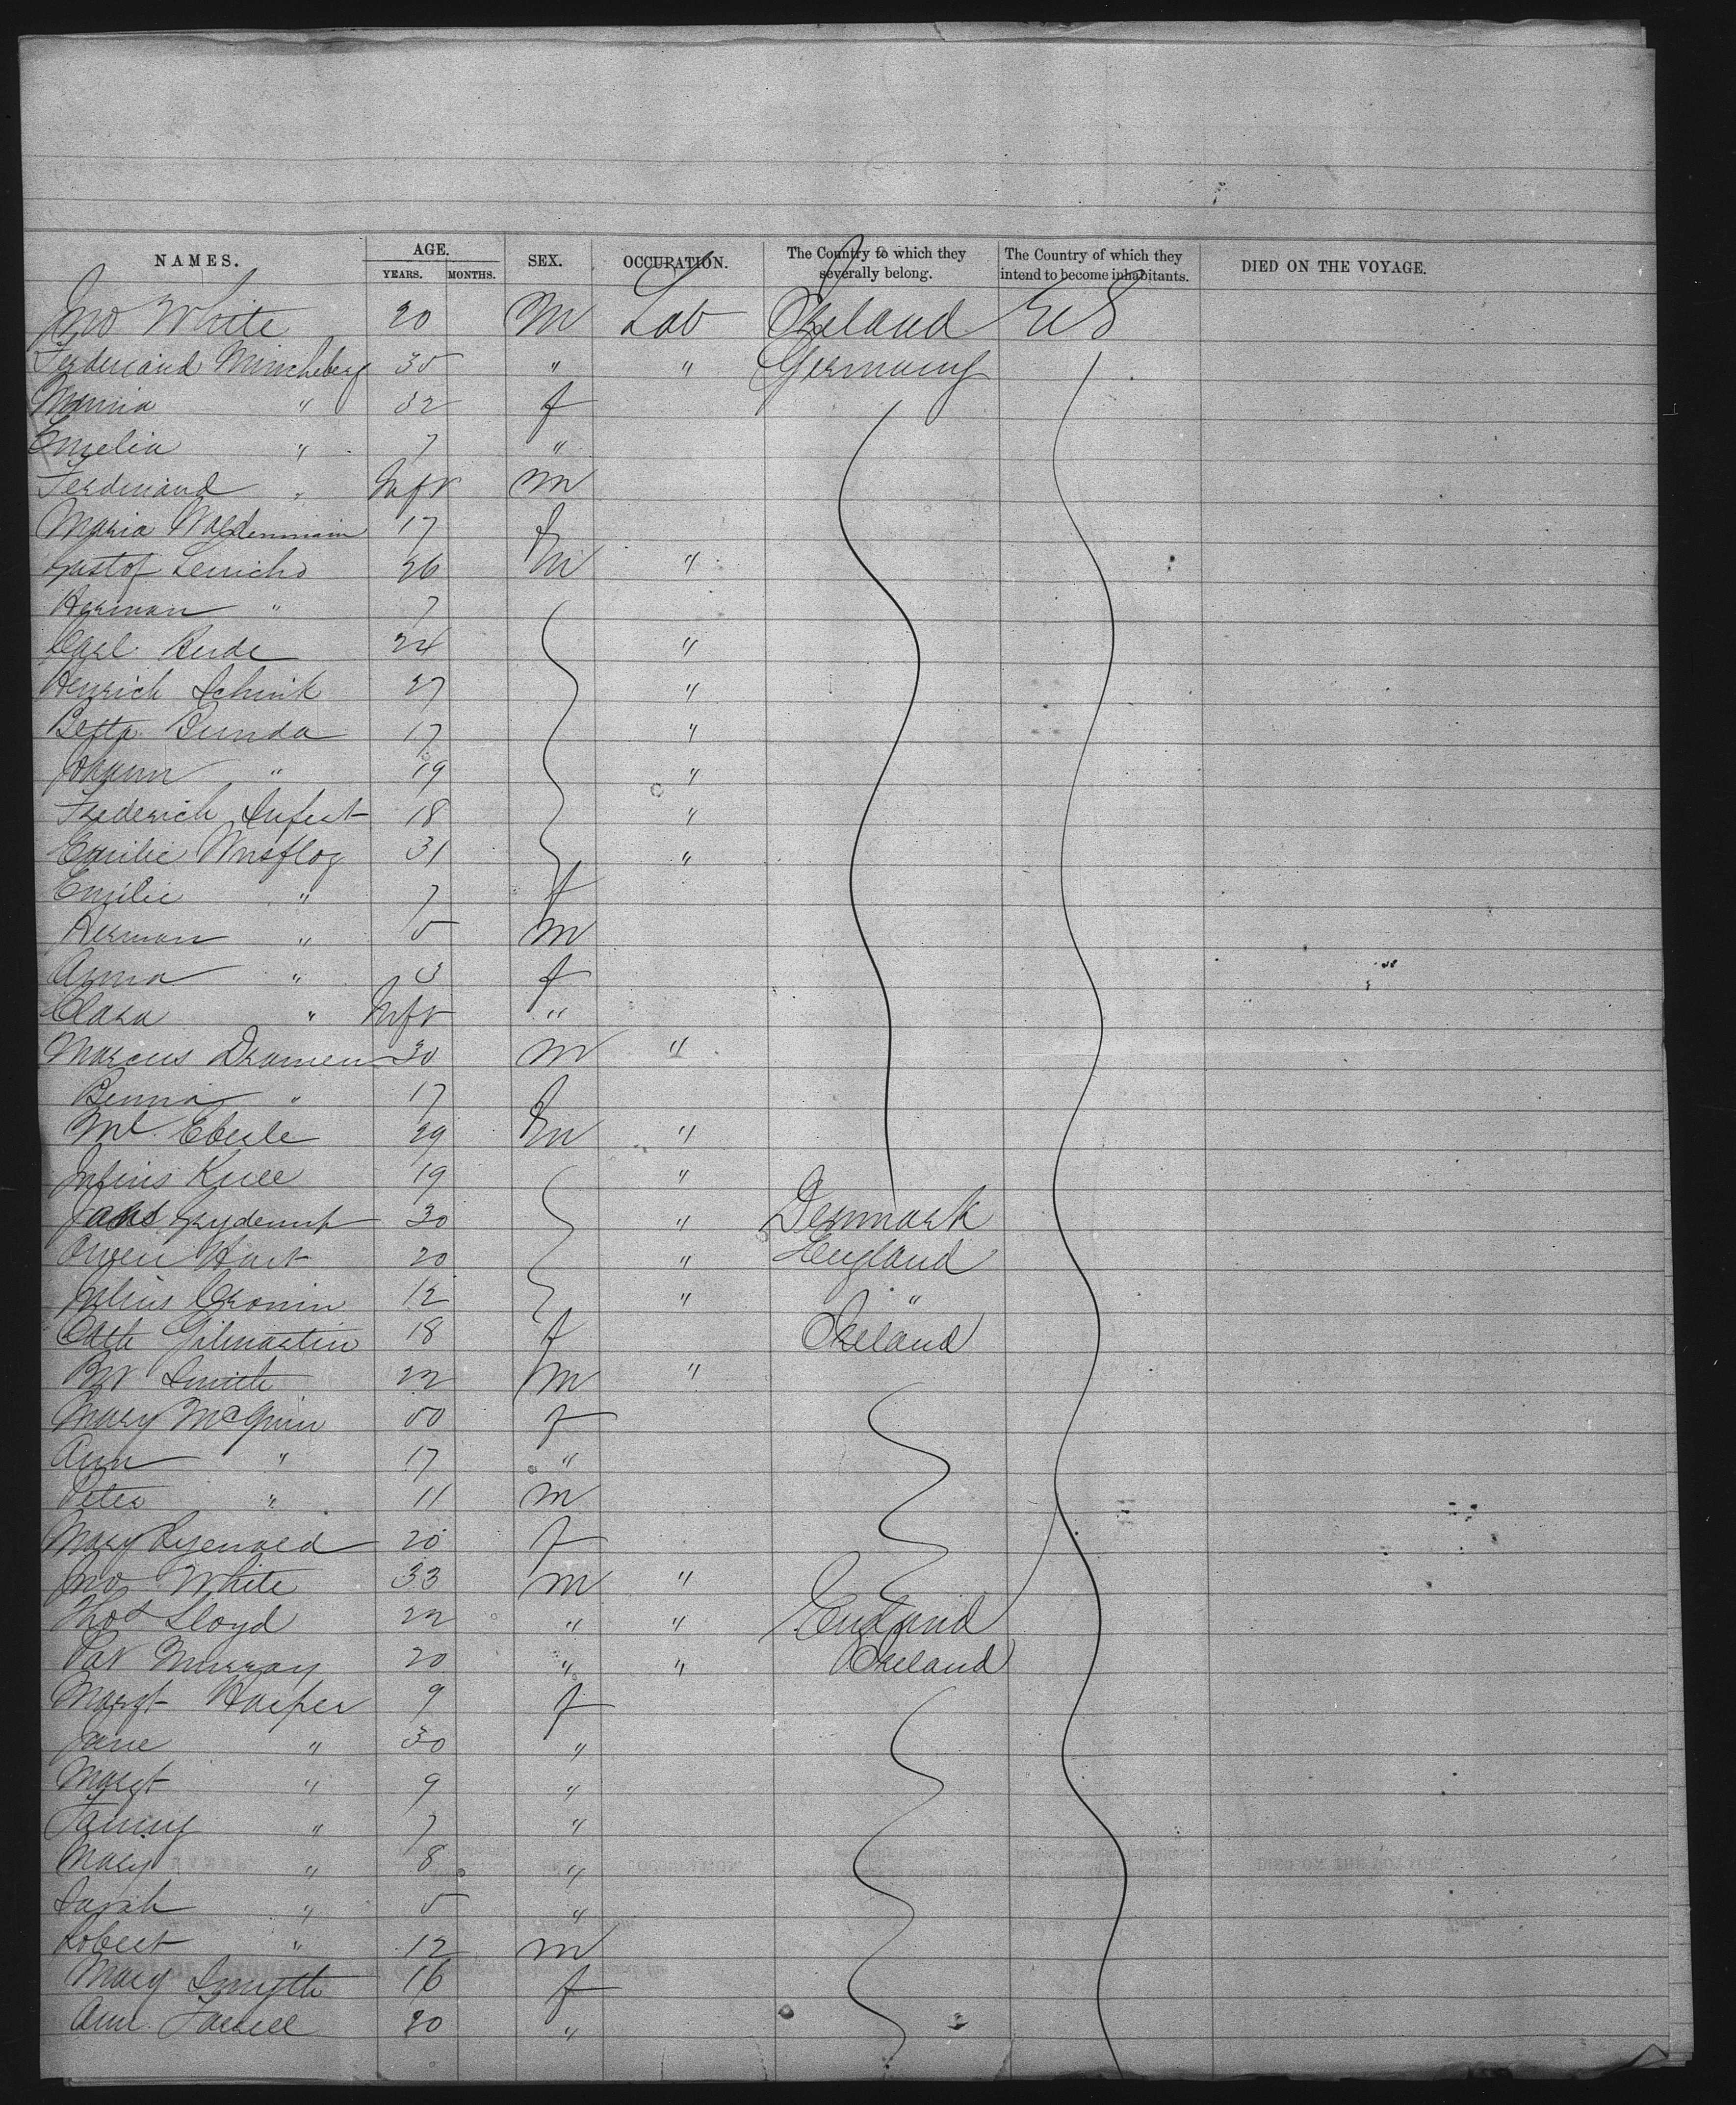 NAMES. AGE. SEX. OCCUPATION. The Country to which they severally belong. The Country of which they intend to become inhabitants. DIED ON THE VOYAGE.
YEARS. MONTHS.
Jno White 20 M Lab Ireland US
Ferdinand Muncheberg 35 " " Germany
Minna " 32 f
Emelia " 7 "
Ferdinand " Inft m
Maria 17 f
Gustof 26 m "
Herman " 7
Carl 24 "
Henrich Schink 27 "
Bunda 17 "
Johann " 19 "
Frederich 18 "
Emilie 31 "
Emilie " 7 f
Herman " 5 m
Anna " 3 f
Clara " Inft "
Marcus Dramen 30 m "
Benna " 17 f
Ml Eberle 29 m "
Julius 19 "
30 " Denmark
Owen Hart 20 " England
Julius Cronin 12 " "
Cath Gilmartin 18 f Ireland
Smith 22 m "
Mary McGuin 50 f
Ann " 17 "
Peter " 11 m
Mary 20 f
Jno White 33 m "
Thos Lloyd 22 " " England
Pat Murray 20 " " Ireland
Margt Harper 9 f
Jane " 30 "
Margt " 9 "
Fanny " 7 "
Mary " 8 "
Sarah " 5 "
Robert " 12 m
Mary Smyth 16 f
Ann Farrell 20 "